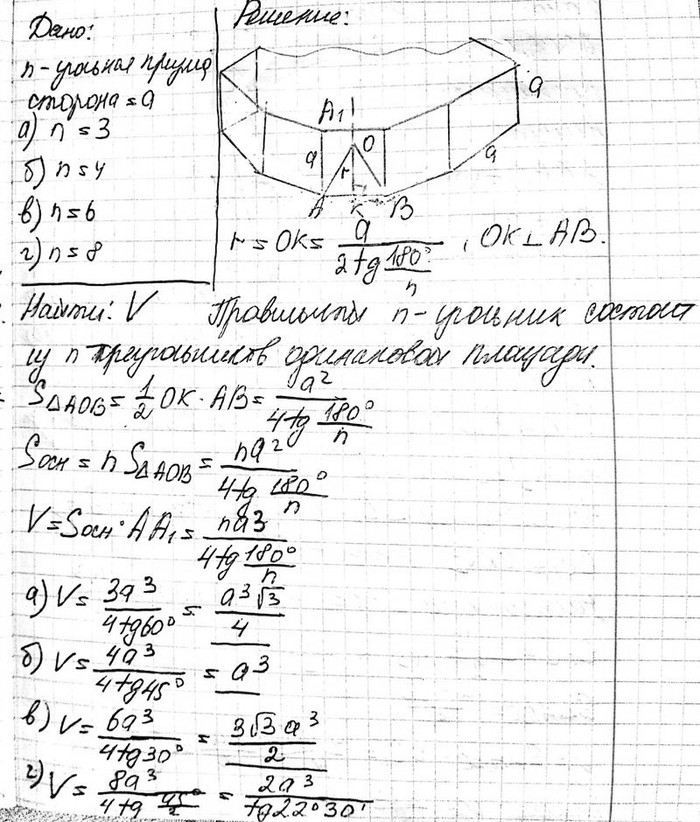 Дано:
n-угольная призма
сторона = a
а) n = 3
б) n = 4
в) n = 6
г) n = 8
Найти: V
Решение:
a
A₁
O
a
r
a
A
K
B
r = OK = a / (2tg 180°/n), OK ⊥ AB.
Правильный n-угольник состоит
из n треугольников одинаковой площади.
S△AOB = 1/2 OK · AB = a² / (4tg 180°/n)
Sосн = n S△AOB = na² / (4tg 180°/n)
V = Sосн · AA₁ = na³ / (4tg 180°/n)
а) V = 3a³ / 4tg60° = a³√3 / 4
б) V = 4a³ / 4tg45° = a³
в) V = 6a³ / 4tg30° = 3√3 a³ / 2
г) V = 8a³ / (4tg 45°/2) = 2a³ / tg22°30'